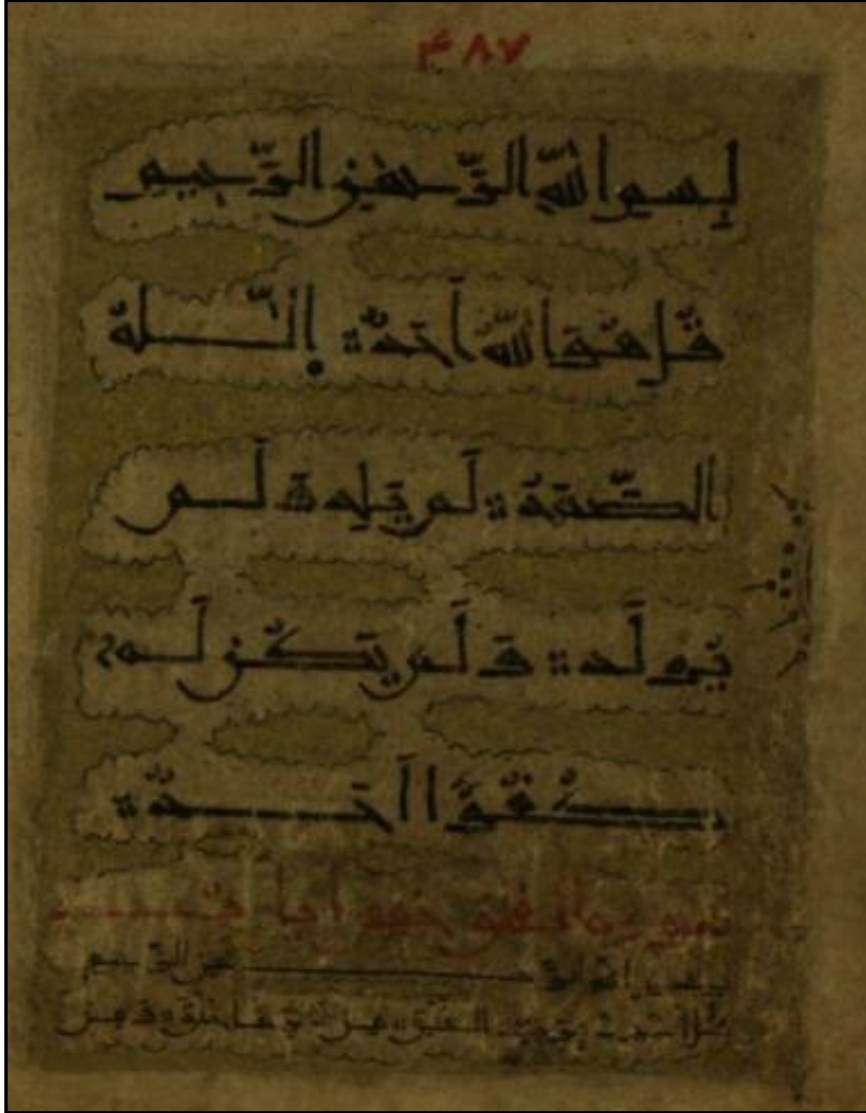 ۴۸۷
بِسمِ اللّٰهِ الرَّحمٰنِ الرَّحِيمِ
قُل هُوَ اللّٰهُ أَحَدٌ اللّٰهُ
الصَّمَدُ لَم يَلِد وَ لَم
يُولَد وَ لَم يَكُن لَهُ
كُفُوًا أَحَدٌ
سورة الفلق خمس آيات
بسم الله الرحمن الرحيم
قل أعوذ برب الفلق من شر ما خلق و من